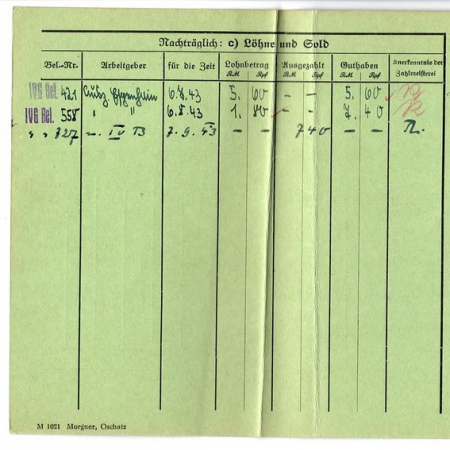 Nachträglich: c) Löhne und Sold
Bel.-Nr. Arbeitgeber für die Zeit Lohnbetrag Ausgezahlt Guthaben Anerkenntnis der Zahlmeisterei
RM Rpf RM Rpf RM Rpf
IVG Bel. 421 6.8.43 5. 60 – – 5. 60
IVG Bel. 558 " " 6.8.43 1. 80 – – 7. 40
" " 827 IV B 7.9.43 – 7 40 –
M 1021 Morgner, Oschatz